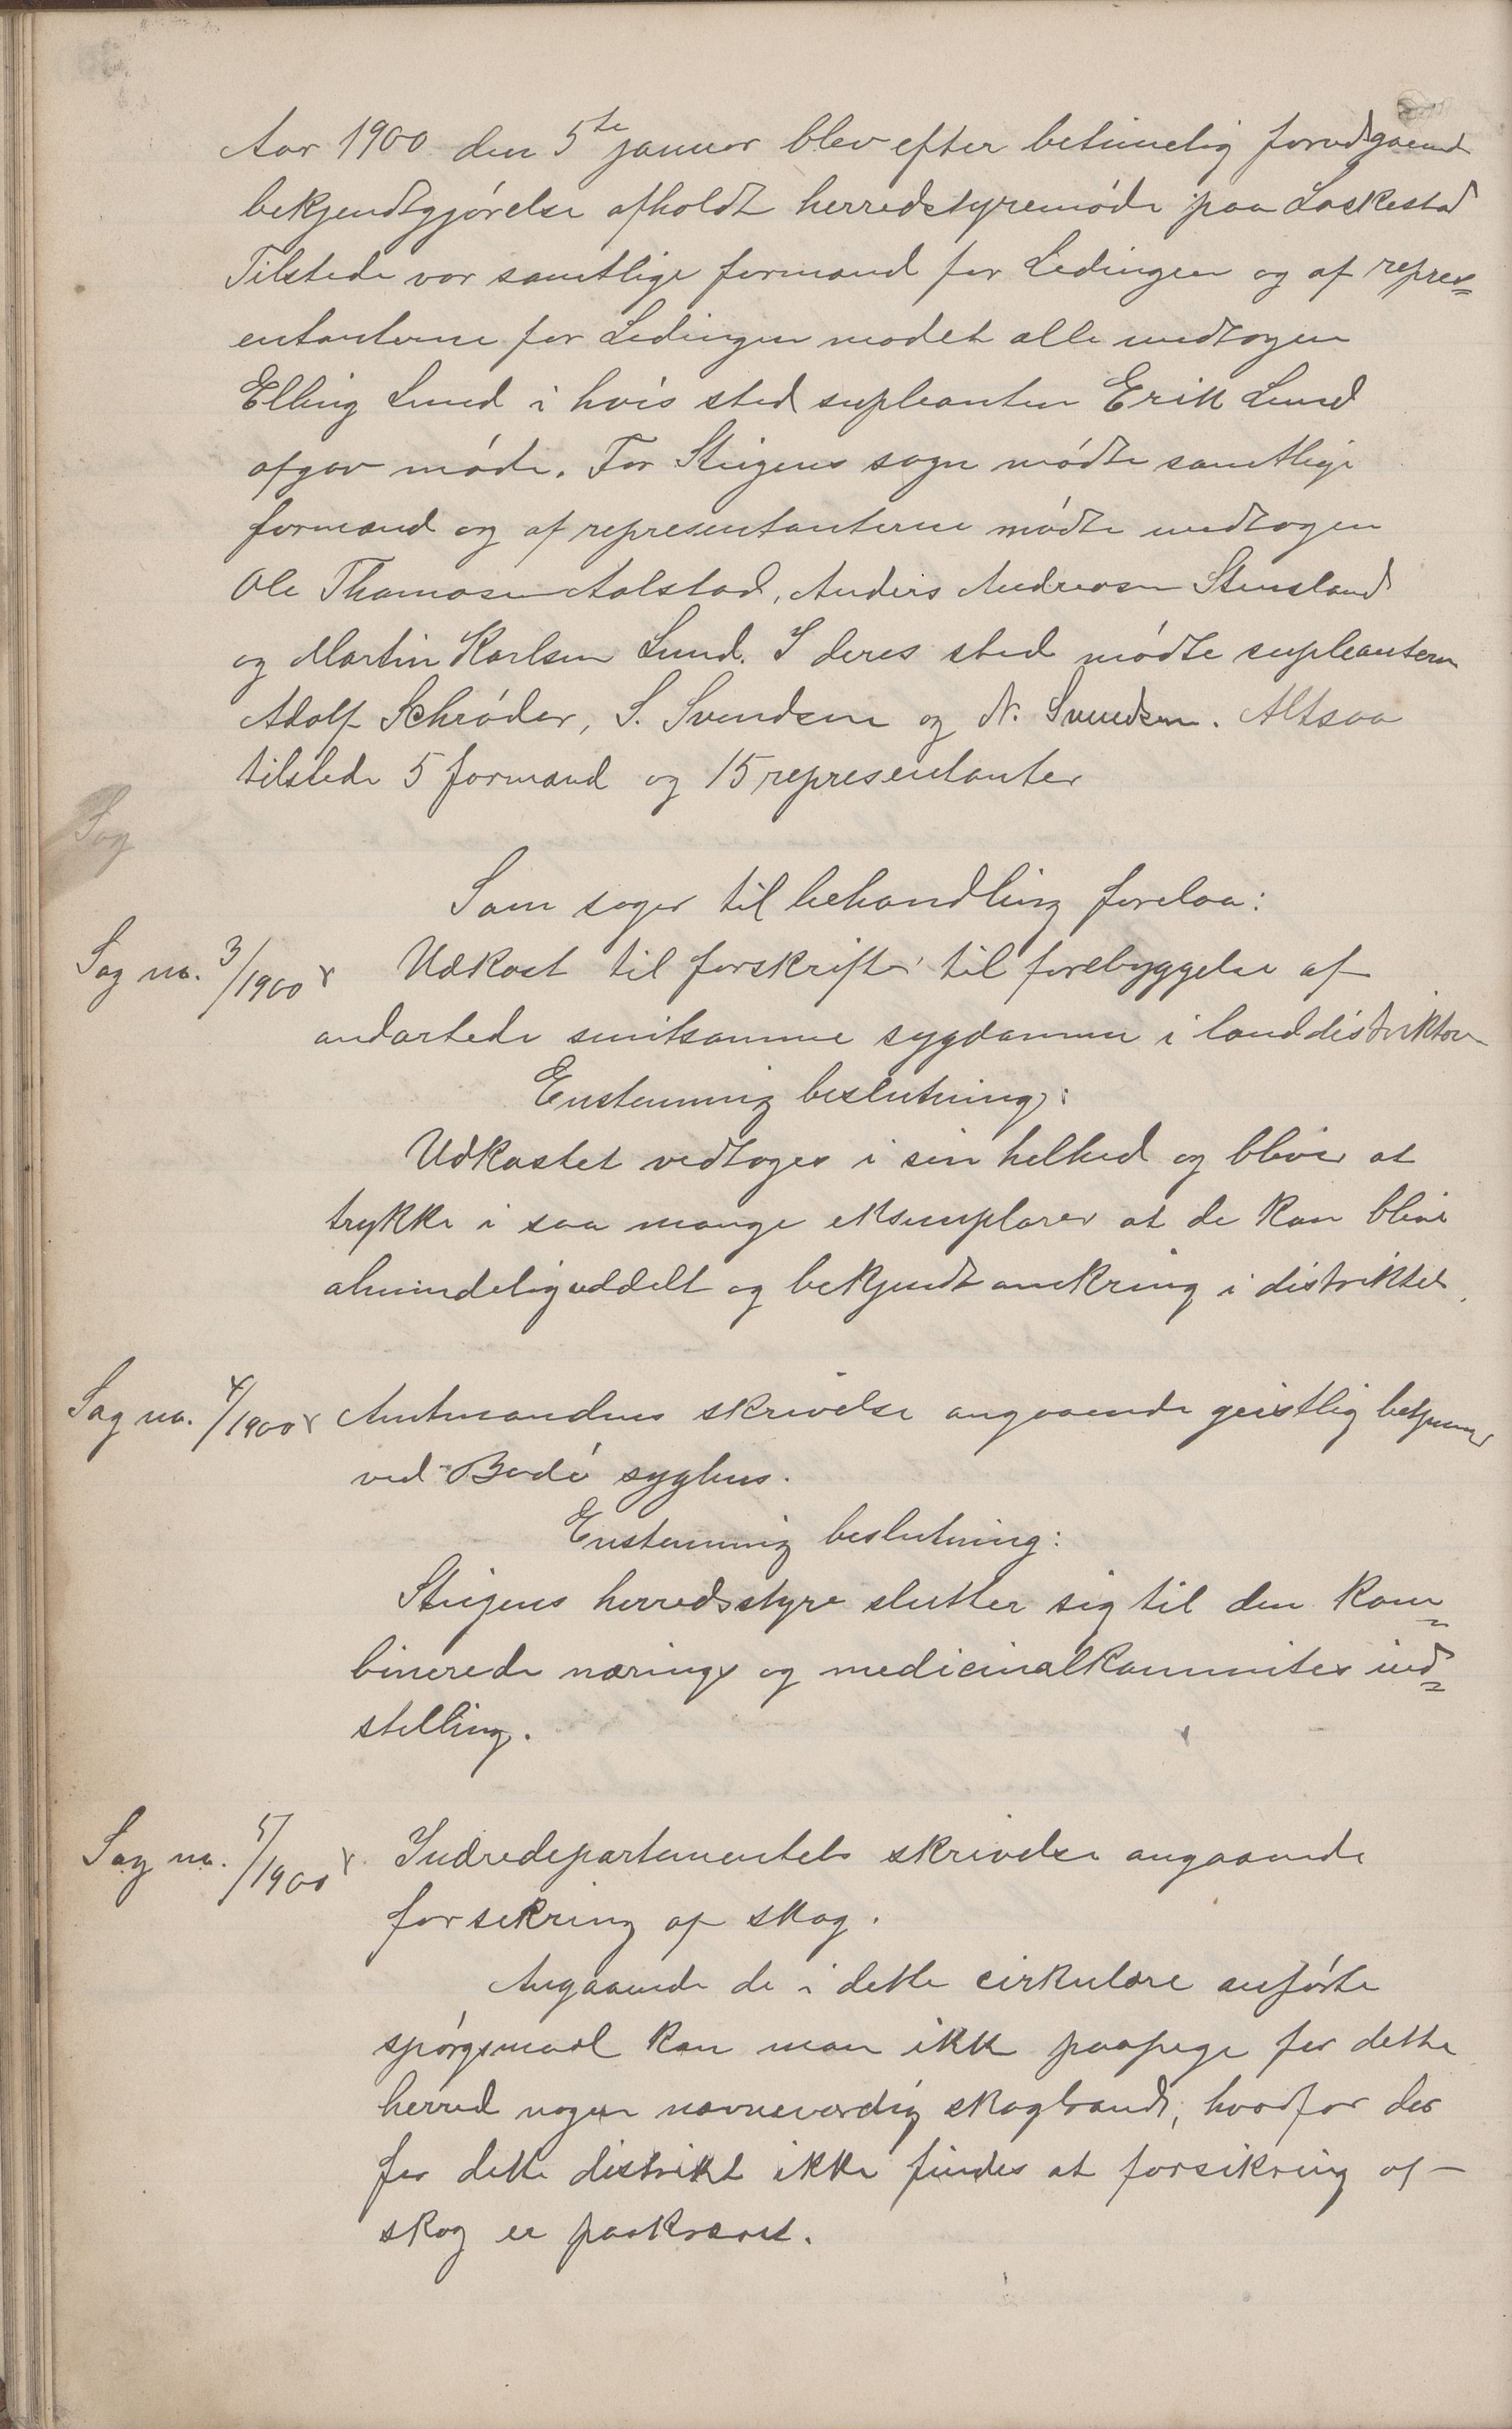 Aar 1900 den 5te januar blev efter betimelig forudgaaend
bekjendtgjørelse afholdt herredstyremøde paa Laskestad
Tilstede var samtlige formænd for Ledingen og af repræs=
entanterne for Ledingen mødet alle undtagen
Elling Lund i hvis sted supleanten Erik Lund
afgav møde. For Steigens sogn mødte samtlige
formænd og af representanterne mødte undtagen
Ole Thomasen Aalstad, Anders Andreasen Stensland
og Martin Karlsen Lund. I deres sted mødte supleantern
Adolf Schrøder, S. Svendsen og N. Svendsen. Altsaa
tilstede 5 formænd og 15 representanter
Sag
Som sager til behandling forelaa:
Sag no. 3/1900 Udkast til forskrifter til forebyggelse af
ondartede smitsomme sygdomme i landdistrikter
Enstemmig beslutning:
Udkastet vedtages i sin helhed og bliver at
trykke i saa mange eksemplarer at de kan blive
almindelig uddelt og bekjendt omkring i distriktet.
Sag no. 4/1900 Amtmandens skrivelse angaaende geistlig betjening
ved Bodø syghus.
Enstemmig beslutning:
Steigens herredsstyre slutter sig til den kom=
binerede nærings og medicinalkommites ind=
stilling.
Sag no. 5/1900 Indredepartementets skrivelse angaaende
forsikring af skog.
Angaaende de i dette cirkulære anførte
spørgsmaal kan man ikke paapege for dette
herred nogen nævneværdig skogbrand, hvorfor der
for dette distrikt ikke findes at forsikring af
skog er paakrævet.